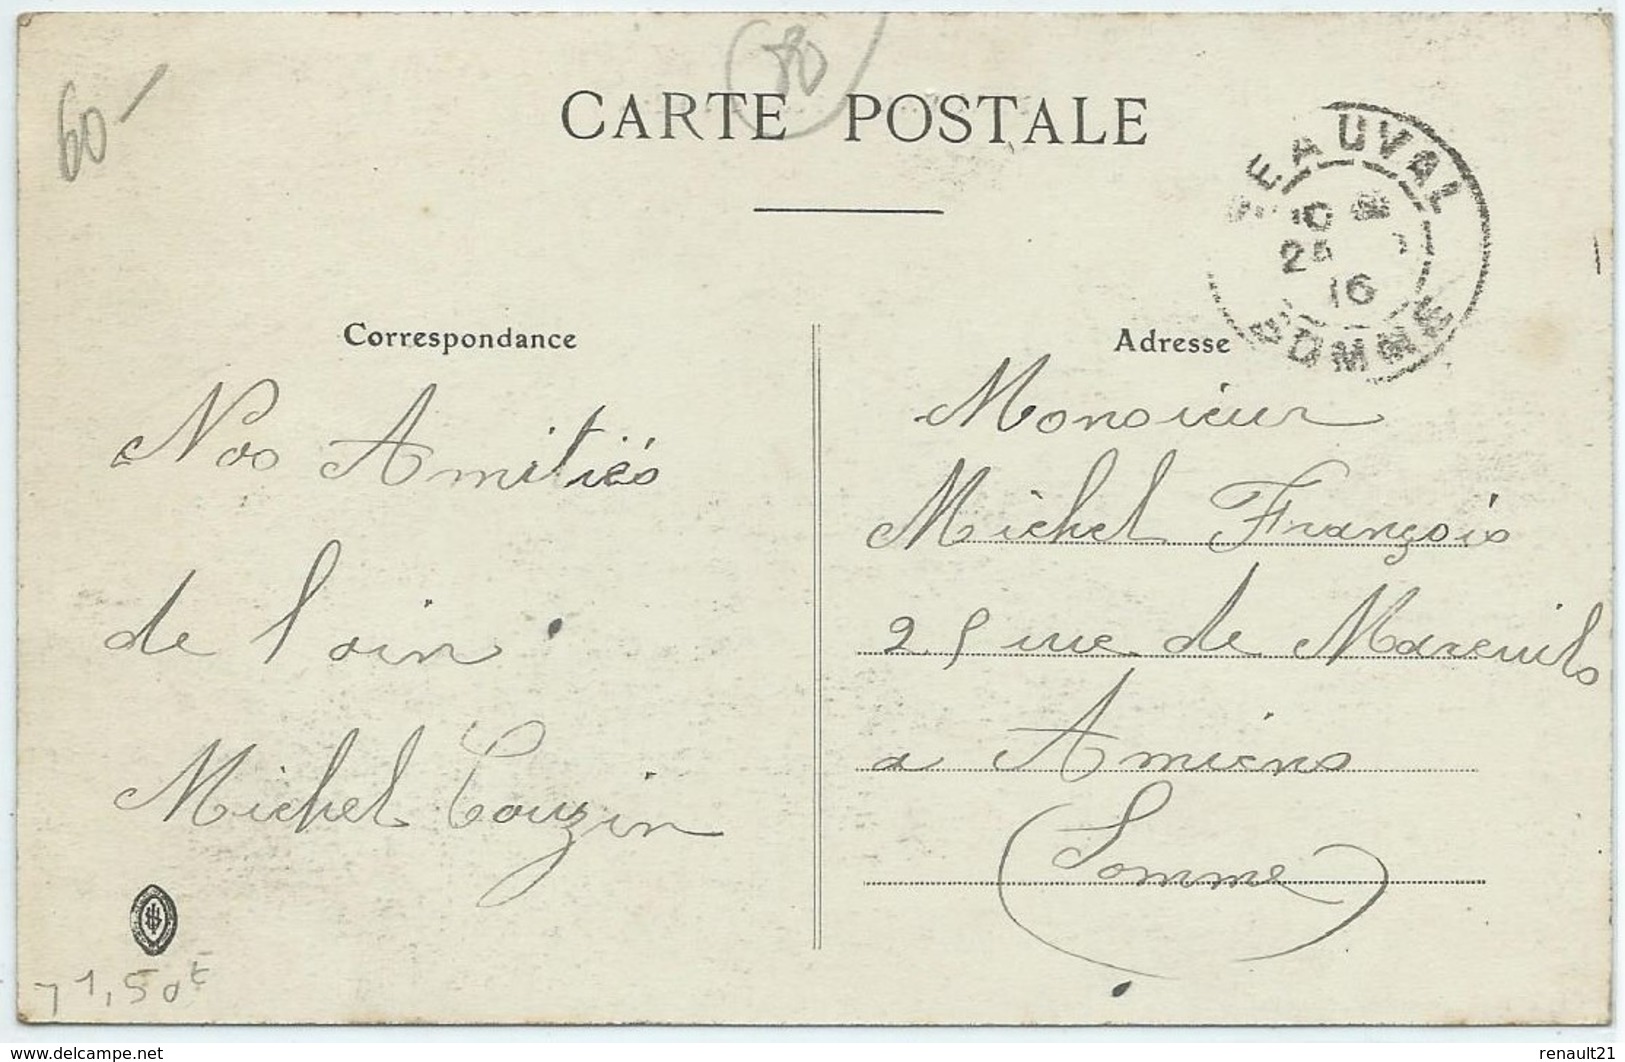 60-
80
CARTE POSTALE
BEAUVAL
10
25
16
SOMME
Correspondance
Nos Amitiés
de loin.
Michel Couzin
Adresse
Monsieur
Michel François
25 rue de Mareuils
a Amiens
(Somme)
1,50€
www.delcampe.net
renault21